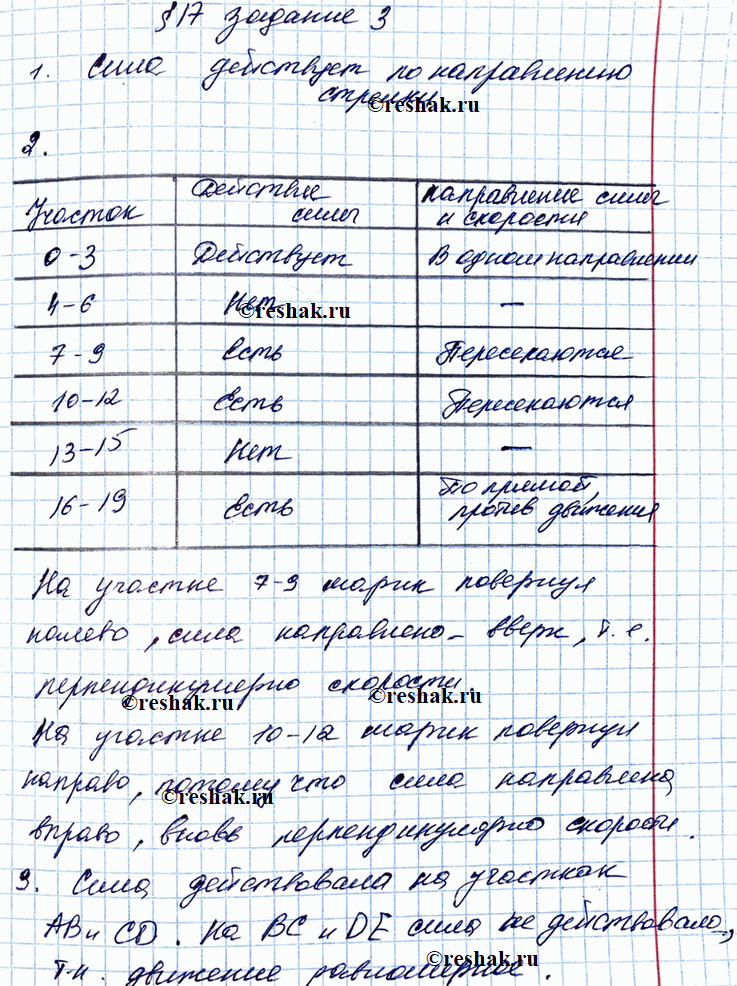 § 17 задание 3
1. Сила действует по направлению
стрелки
©reshak.ru
2.
Участок Действие силы Направление силы и скорости
0-3 Действует В одном направлении
4-6 Нет —
©reshak.ru
7-9 Есть Пересекаются
10-12 Есть Пересекаются
13-15 Нет —
16-19 Есть По прямой, против движения
На участке 7-9 шарик повернул
налево, сила направлено - вверх, т.е.
перпендикулярно скорости
©reshak.ru ©reshak.ru
На участке 10-12 шарик повернул
направо, потому что сила направлена
©reshak.ru
вправо, вновь перпендикулярно скорости.
3. Сила действовала на участках
AB и CD. На BC и DE сила не действовала,
т.к. движение равномерное.